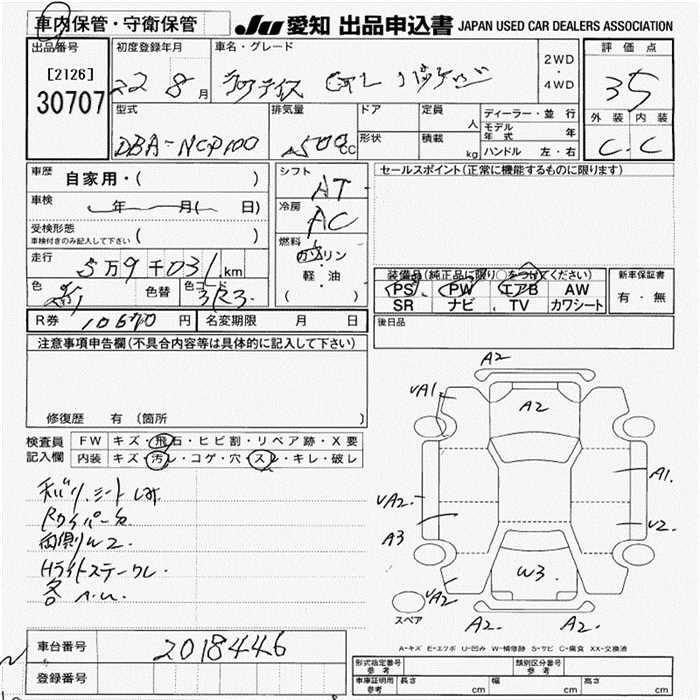 車内保管・守衛保管
JU 愛知 出品申込書 JAPAN USED CAR DEALERS ASSOCIATION
出品番号
[2126]
30707
初度登録年月
22 8月
車名・グレード
2WD
・
4WD
評価点
35
外装 内装
C C
型式
DBA-NCP100
排気量
1500cc
ドア
形状
定員
人
積載
kg
ディーラー・並行
モデル年式 年
ハンドル 左・右
車歴
自家用・( )
車検
年 月( 日)
受検形態
車検付きのみ記入して下さい ( )
走行
5万9千031km
色
色替
色コード
3R3
シフト
AT
冷房
AC
燃料
ガソリン
軽・油
( )
セールスポイント(正常に機能するものに限ります)
装備品(純正品に限り○をつけてください)
PS PW エアB AW
SR ナビ TV カワシート
新車保証書
有・無
後日品
R券 10670円
名変期限 月 日
注意事項申告欄(不具合内容等は具体的に記入して下さい)
修復歴 有(箇所 )
検査員
記入欄
FW キズ・飛石・ヒビ割・リペア跡・X要
内装 キズ・汚レ・コゲ・穴・スレ・キレ・破レ
両側W2
A2
A2
UA1
A1
UA2
U2
A3
W3
UA2
A2
A2
スペア
A-キズ E-エクボ U-凹み W-補修跡 S-サビ C-腐食 XX-交換済
車台番号
2018446
登録番号
形式指定番号
参考
類別区分番号
参考
車庫証明用
参考
長さ cm
幅 cm
高さ cm